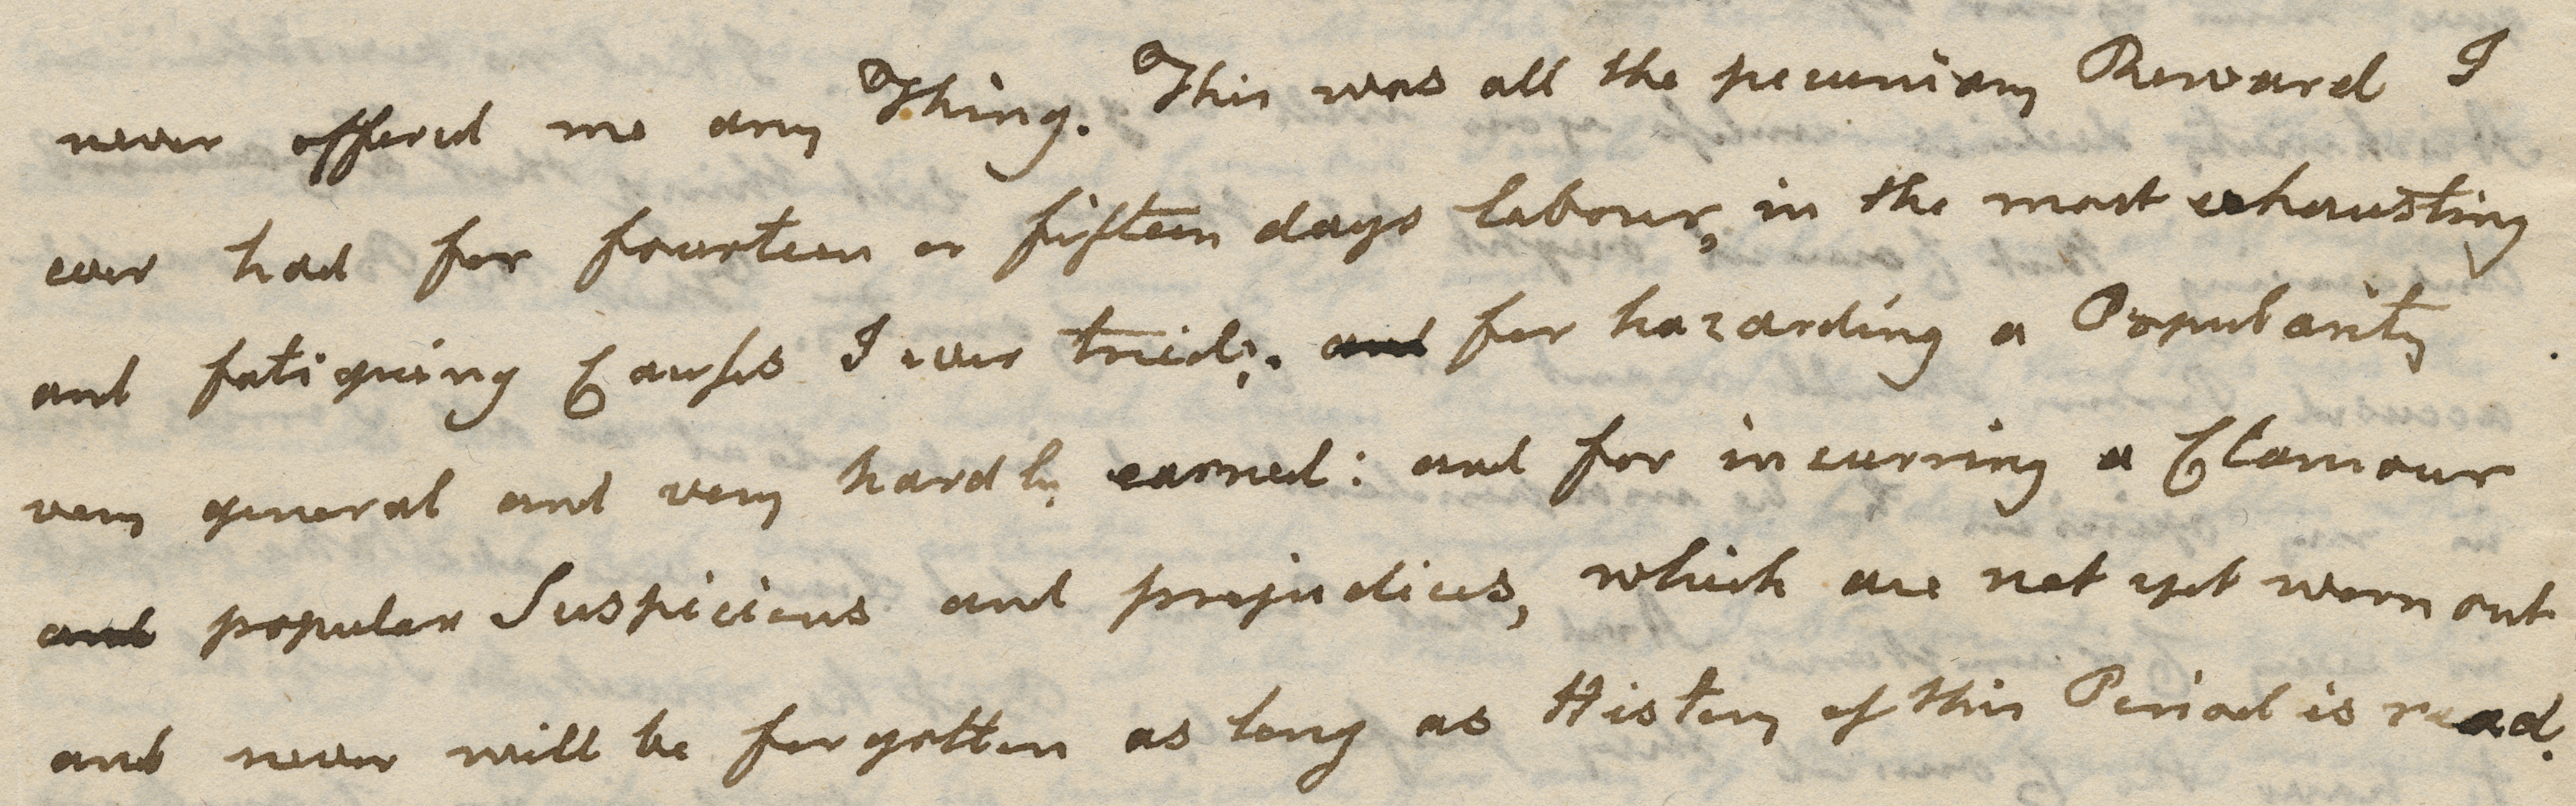 never offered me any Thing. This was all the pecuniary Reward I
ever had for fourteen or fifteen days labour, in the most exhausting
and fatiguing Causes I ever tried: and for hazarding a Popularity
very general and very hardly earned: and for incurring a Clamour
and popular Suspicions and prejudices, which are not yet worn out
and never will be forgotten as long as History of this Period is read.